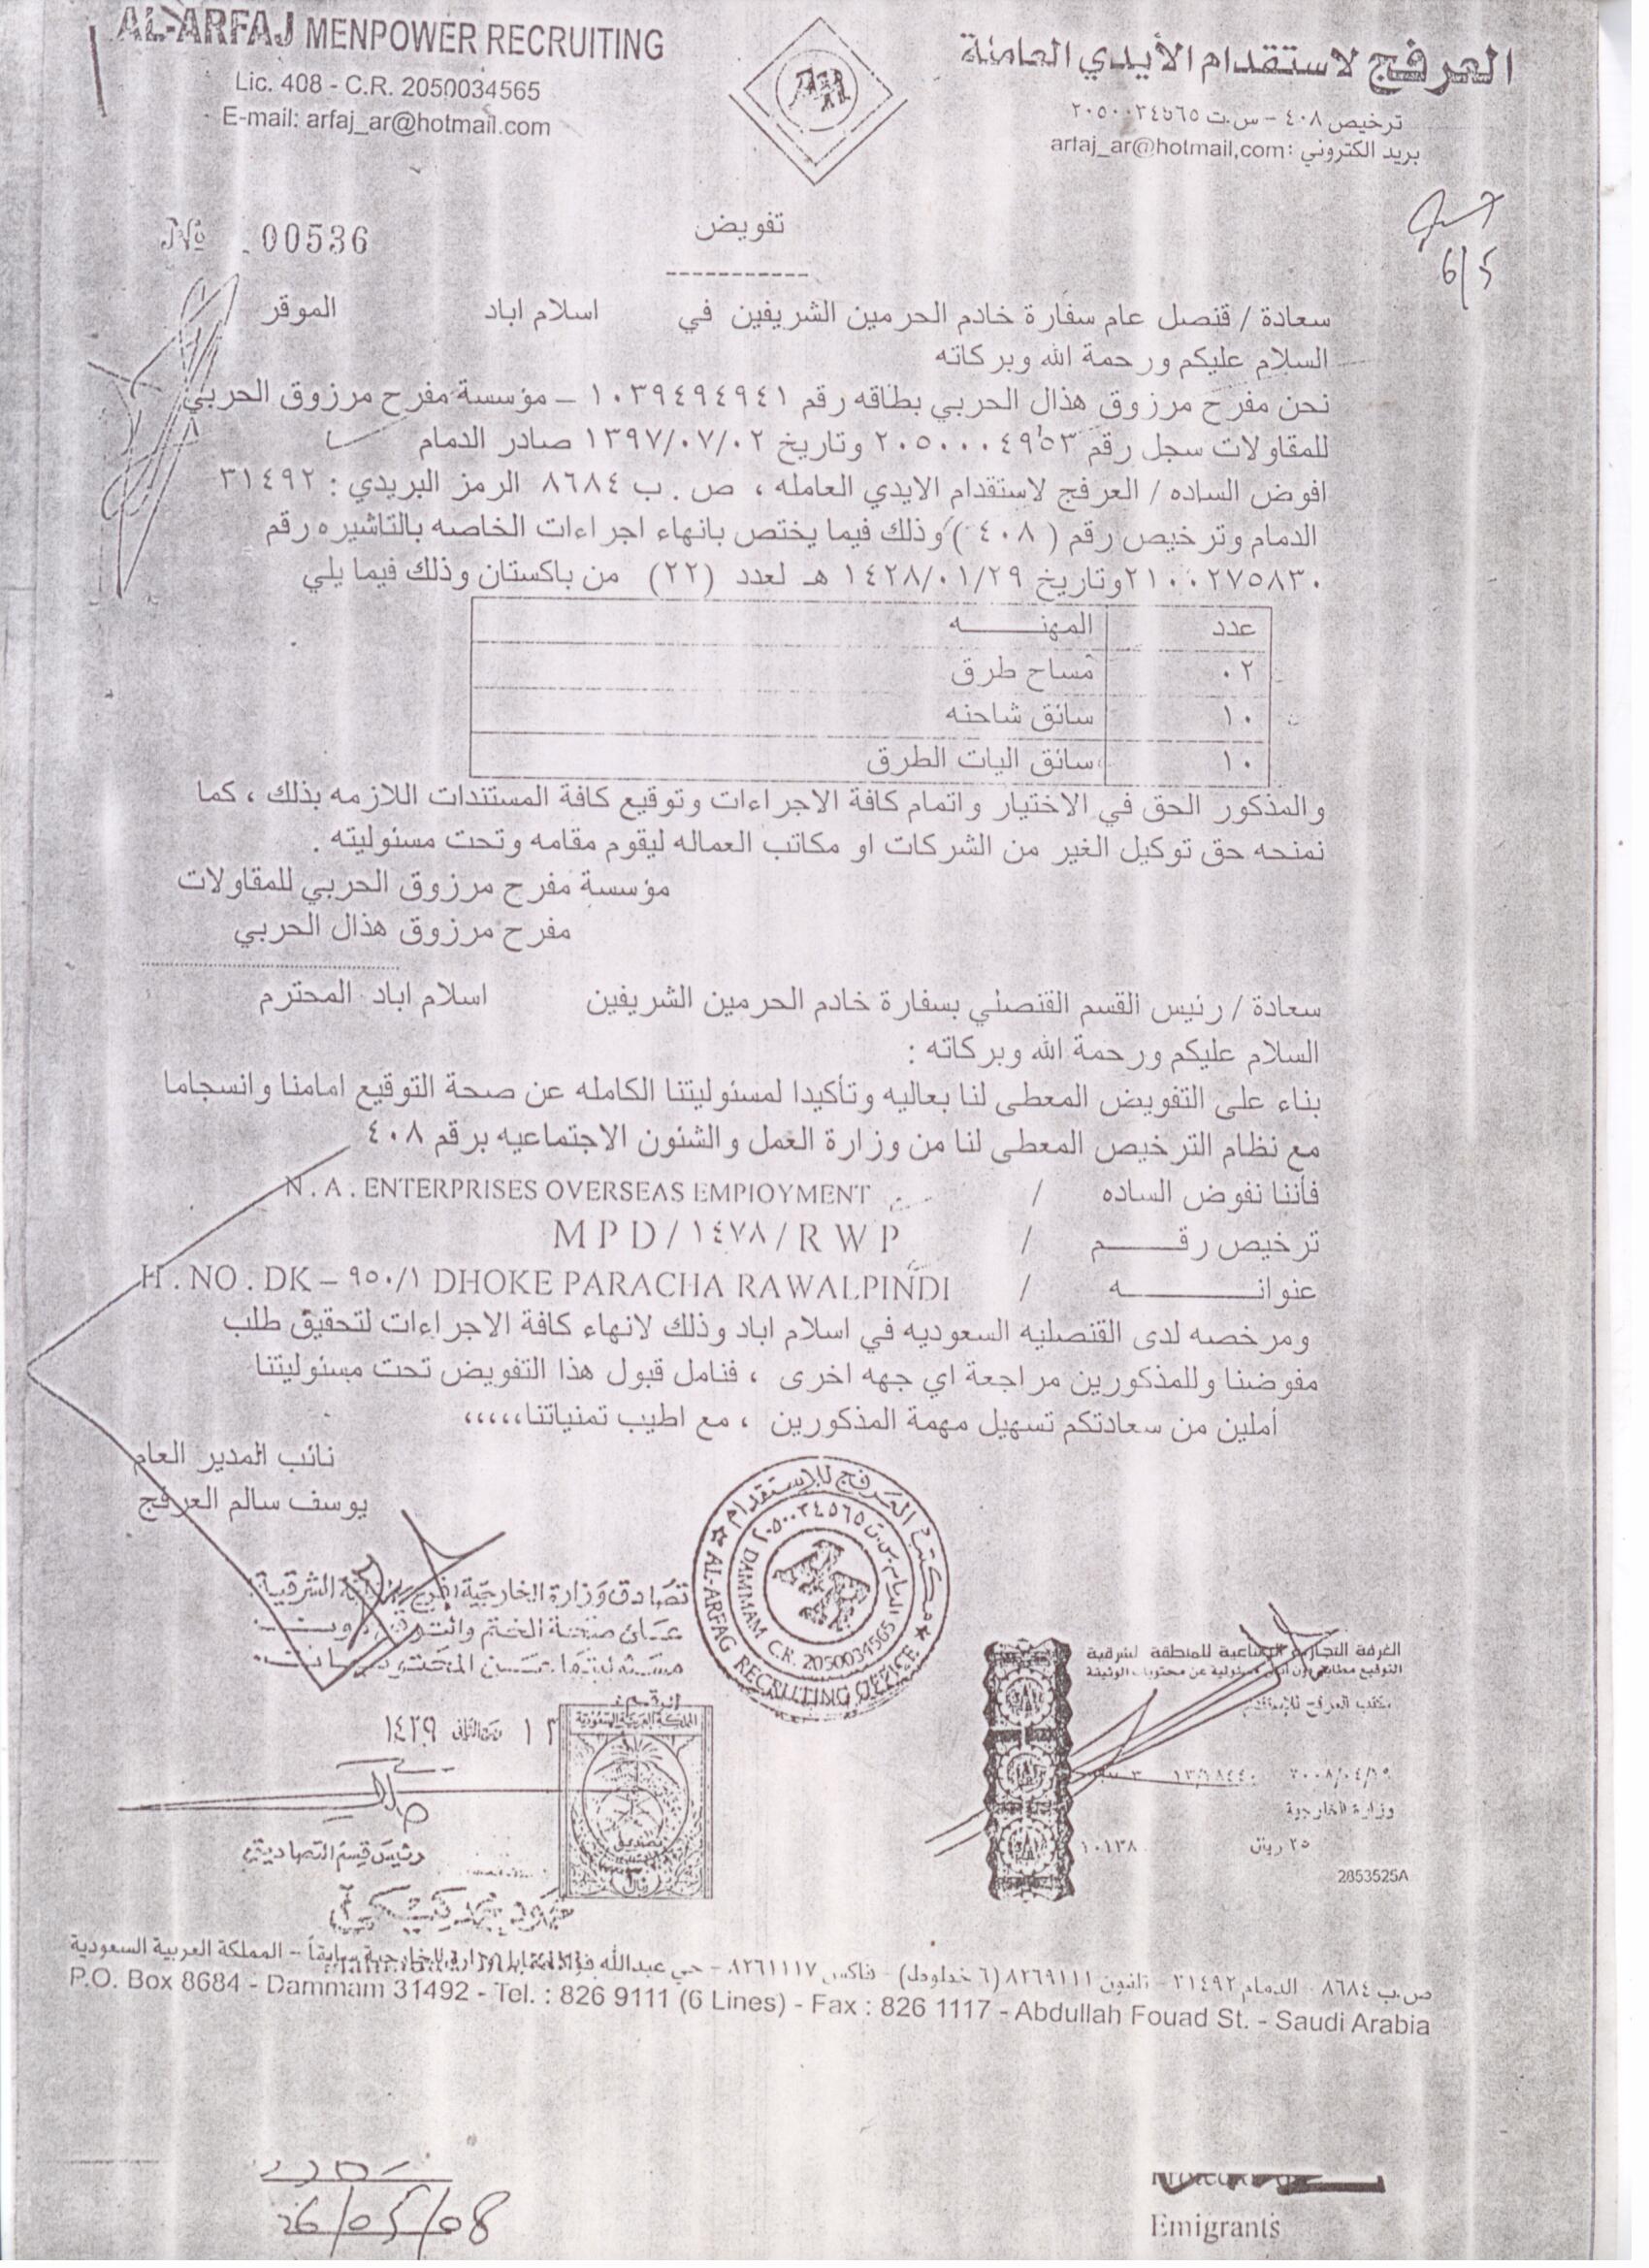 AL-ARFAJ MENPOWER RECRUITING
Lic. 408 - C.R. 2050034565
E-mail: arfaj_ar@hotmail.com
العرفج لاستقدام الأيدي العاملة
ترخيص ٤٠٨ - س.ت ٢٠٥٠٠٣٤٥٦٥
بريد الكتروني: arfaj_ar@hotmail,com
№ 00536
تفويض
6/5
سعادة / قنصل عام سفارة خادم الحرمين الشريفين في اسلام اباد الموقر
السلام عليكم ورحمة الله وبركاته
نحن مفرح مرزوق هذال الحربي بطاقه رقم ١٠٣٩٤٩٤٩٤١ – مؤسسة مفرح مرزوق الحربي
للمقاولات سجل رقم ٢٠٥٠٠٠٤٩٥٣ وتاريخ ١٣٩٧/٠٧/٠٢ صادر الدمام
افوض الساده / العرفج لاستقدام الايدي العامله ، ص . ب ٨٦٨٤ الرمز البريدي : ٣١٤٩٢
الدمام وترخيص رقم ( ٤٠٨ ) وذلك فيما يختص بانهاء اجراءات الخاصه بالتاشيره رقم
٢١٠٠٢٧٥٨٣٠ وتاريخ ١٤٢٨/٠١/٢٩ هـ لعدد (٢٢) من باكستان وذلك فيما يلي
عدد المهنـــــه
٠٢ مساح طرق
١٠ سائق شاحنه
١٠ سائق اليات الطرق
والمذكور الحق في الاختيار واتمام كافة الاجراءات وتوقيع كافة المستندات اللازمه بذلك ، كما
نمنحه حق توكيل الغير من الشركات او مكاتب العماله ليقوم مقامه وتحت مسئوليته .
مؤسسة مفرح مرزوق الحربي للمقاولات
مفرح مرزوق هذال الحربي
سعادة / رئيس القسم القنصلي بسفارة خادم الحرمين الشريفين اسلام اباد المحترم
السلام عليكم ورحمة الله وبركاته :
بناء على التفويض المعطى لنا بعاليه وتأكيدا لمسئوليتنا الكامله عن صحة التوقيع امامنا وانسجاما
مع نظام الترخيص المعطى لنا من وزارة العمل والشئون الاجتماعيه برقم ٤٠٨
فأننا نفوض الساده / N . A . ENTERPRISES OVERSEAS EMPIOYMENT
ترخيص رقـــــم / M P D / ١٤٧٨ / R W P
عنوانـــــــــه / H . NO . DK – ٩٥٠/١ DHOKE PARACHA RAWALPINDI
ومرخصه لدى القنصليه السعوديه في اسلام اباد وذلك لانهاء كافة الاجراءات لتحقيق طلب
مفوضنا وللمذكورين مراجعة اي جهه اخرى ، فنامل قبول هذا التفويض تحت مسئوليتنا
أملين من سعادتكم تسهيل مهمة المذكورين ، مع اطيب تمنياتنا،،،،،
نائب المدير العام
يوسف سالم العرفج
مكتب العرفج للإستقدام
الدمام س.ت ٢٠٥٠٠٣٤٥٦٥
DAMMAM C.R. 2050034565
AL-ARFAG RECRUTING OFFICE
تصادق وزارة الخارجية الشرقية
صحة الختم
الرقم:
المملكة العربية السعودية
١٣ ١٤٢٩
رئيس قسم التصاديق
الغرفة التجارية الصناعية للمنطقة الشرقية
مكتب العرفج للإستقدام
٢٠٠٨/٠٤/١٩
وزارة الخارجية
٢٥ ريال ١٠١٣٨
2853525A
ص.ب ٨٦٨٤ - الدمام ٣١٤٩٢ - تلفون ٨٢٦٩١١١ (٦ خطوط) - فاكس ٨٢٦١١١٧ - حي عبدالله فؤاد الخارجية سابقاً - المملكة العربية السعودية
P.O. Box 8684 - Dammam 31492 - Tel. : 826 9111 (6 Lines) - Fax : 826 1117 - Abdullah Fouad St. - Saudi Arabia
26/05/08
Emigrants